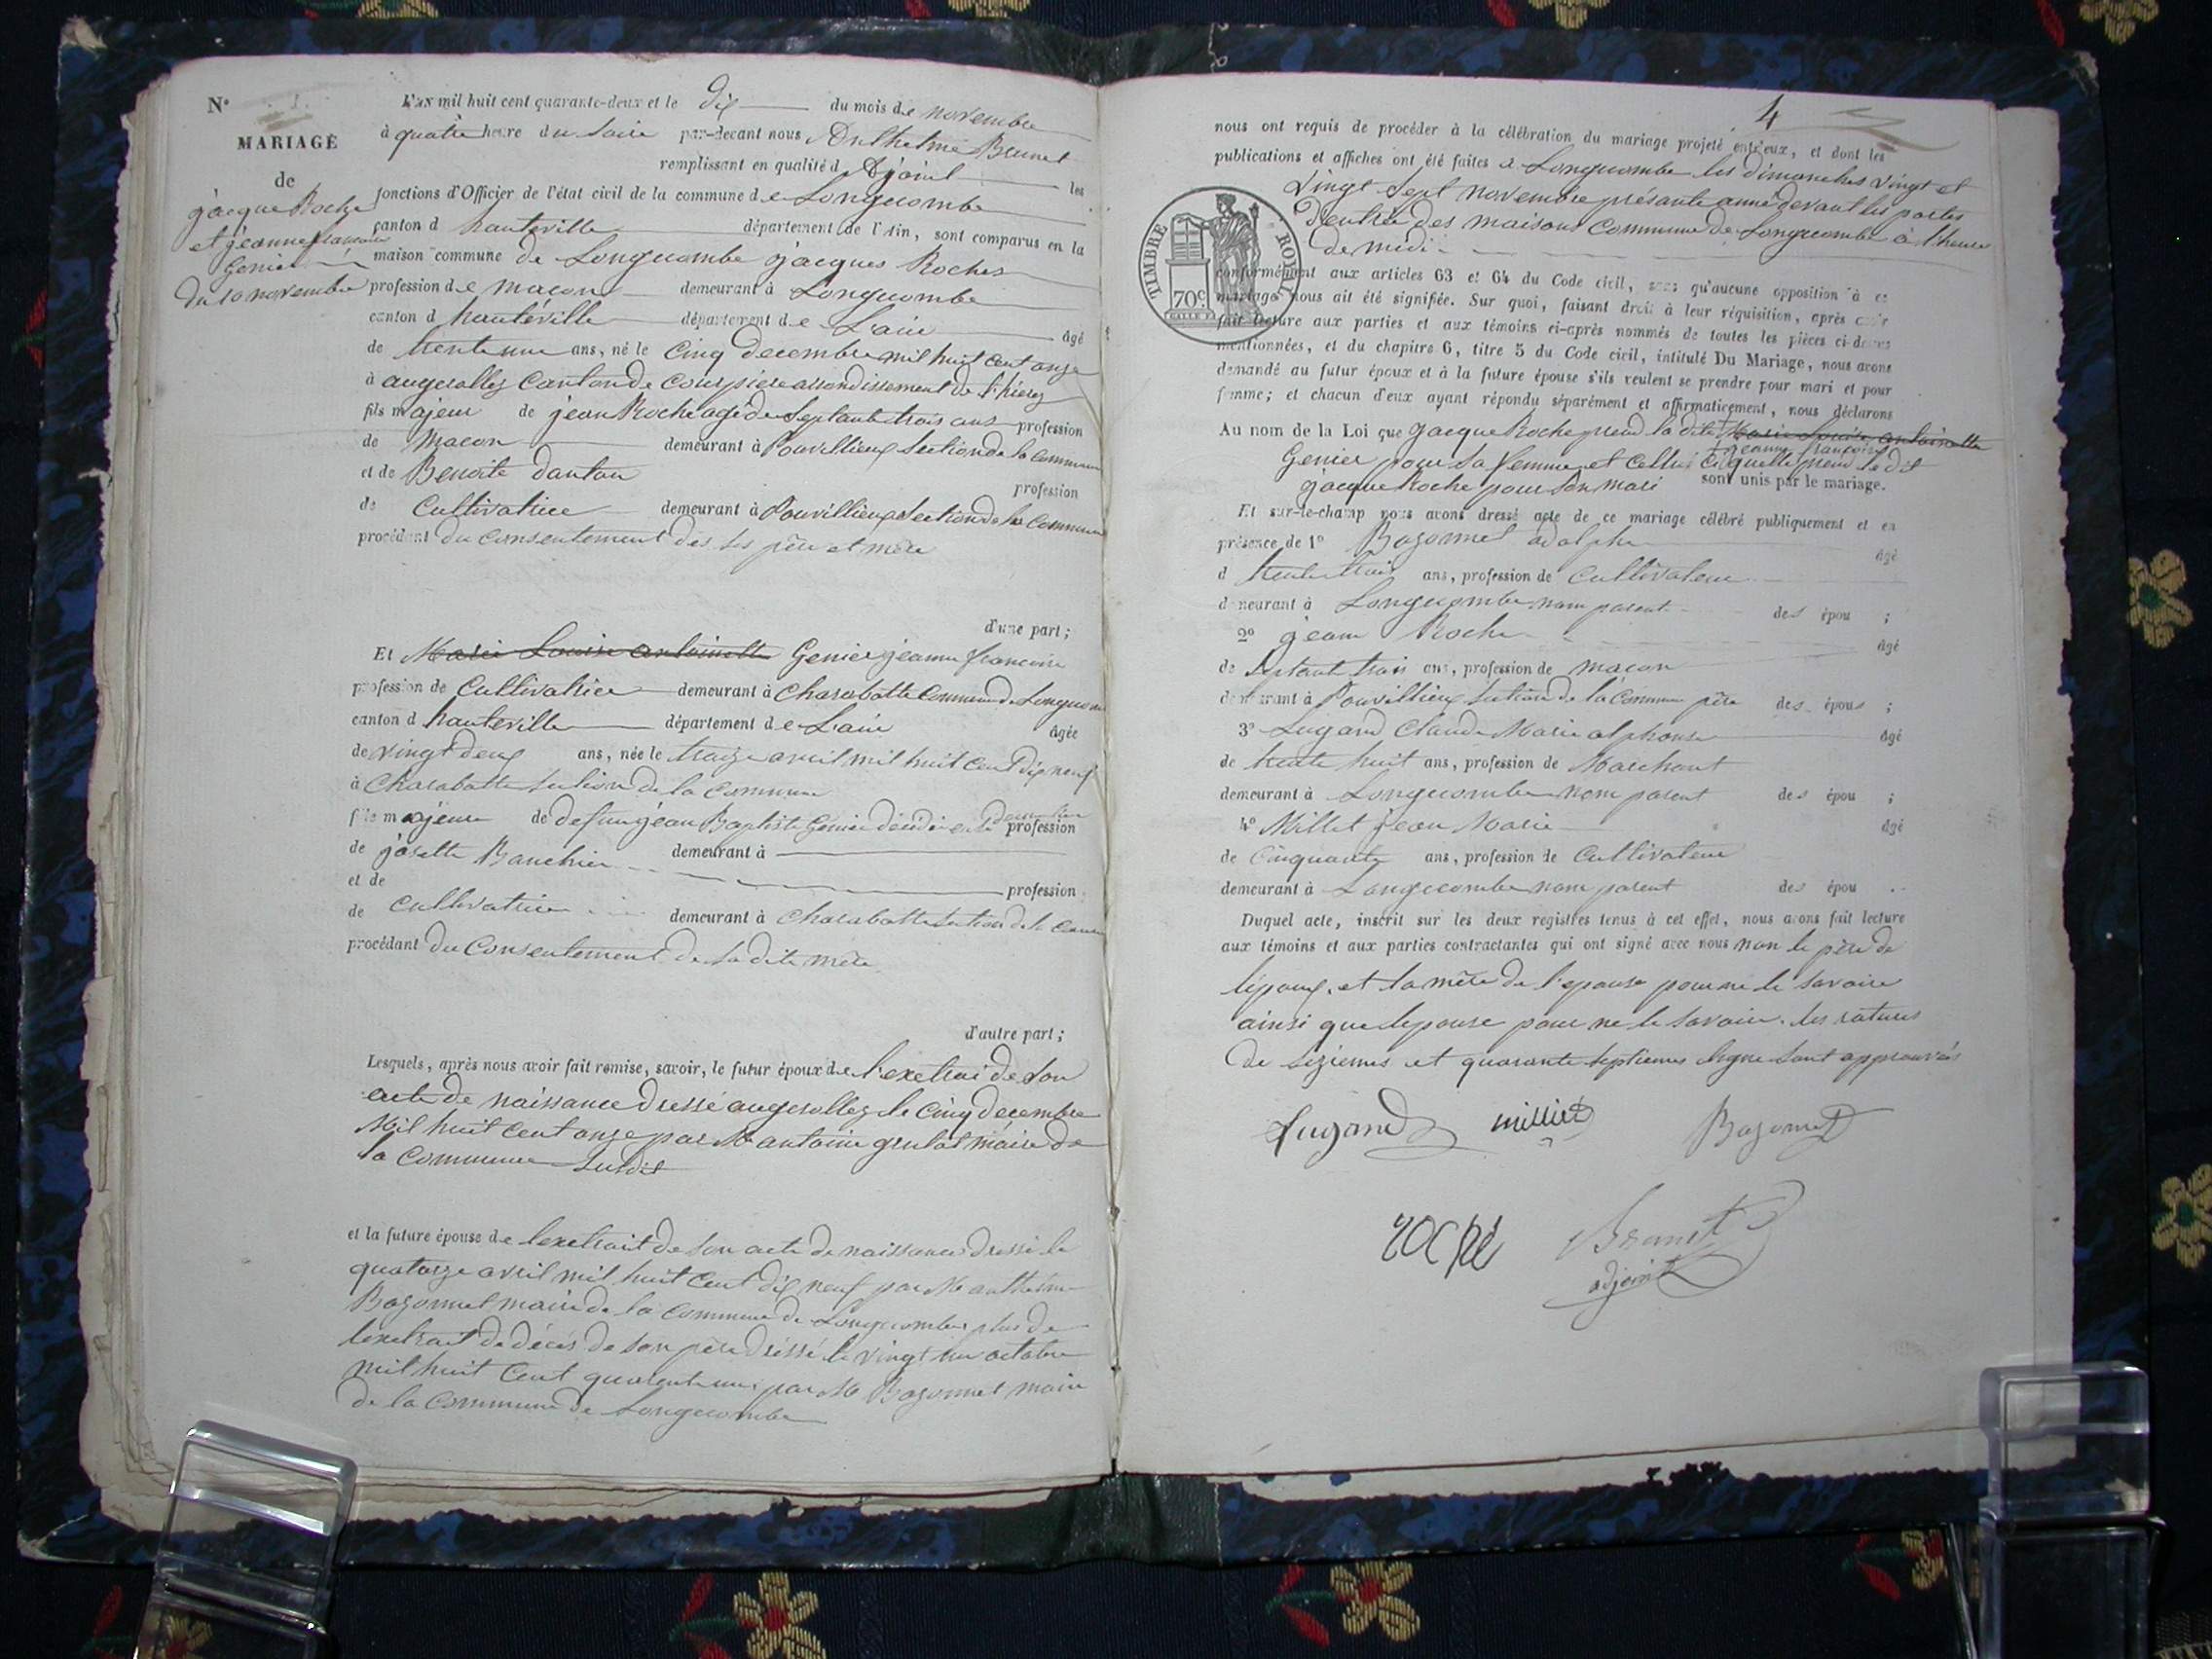 N°
MARIAGE
de
jacque Roche
et jeanne francoise
Genier
du 10 novembre
L'an mil huit cent quarante-deux et le dix du mois de novembre
à quatre heure du soire par-devant nous Anthelme Brunet
remplissant en qualité d Ajoint les
fonctions d'Officier de l'état civil de la commune de Longecombe
canton d hauteville département de l'Ain, sont comparus en la
maison commune de Longecombe jacques Roches
profession de macon demeurant à Longecombe
canton d hauteville département de L'ain âgé
de trente un ans, né le cinq decembre mil huit cent onze
à augerolles canton de courpiere arrondissement de thierz
fils majeur de jean Roche agé de Septante trois ans profession
de Macon demeurant à Pouvillieux section de la commune
et de Benoite dantan profession
de Cultivatrice demeurant à Pouvillieux section de la commune
procédant du consentement des ses père et mère
d'une part ;
Et Marie Louise antoinette Genier jeanne francoise
profession de Cultivatrice demeurant à Charabotte commune de Longecombe
canton d hauteville département de L'ain âgée
de vingt deux ans, née le treize avril mil huit cent dix neuf
à Charabotte section de la commune
fille majeure de defun jean Baptiste Genier décédé profession
de josette Banchier demeurant à
et de profession
de cultivatrice demeurant à Charabotte section de la commune
procédant du consentement de sa dite mère
d'autre part ;
Lesquels, après nous avoir fait remise, savoir, le futur époux de l'exetrai de son
acte de naissance dressé augerollez le cinq decembre
Mil huit cent onze par M antoine grulat maire de
la commune susdit
et la future épouse de lexetrait de son acte de naissance dressé le
quatorze avril mil huit cent dix neuf par M anthelme
Bozonnet maire de la commune de Longecombe plus de
lexetrait de décés de son père dréssé le vingt un octobre
mil huit cent quarente un par M Bozonnet maire
de la commune de Longecombe
4
nous ont requis de procéder à la célébration du mariage projeté entr'eux, et dont les
publications et affiches ont été faites à Longecombe les dimanches vingt et
vingt sept novembre présante anné devant les portes
dentrée des maisons commune de Longecombe à l'heure
de midi
TIMBRE ROYAL
70c.
conformément aux articles 63 et 64 du Code civil, sans qu'aucune opposition à ce
mariage nous ait été signifiée. Sur quoi, faisant droit à leur réquisition, après avoir
fait lecture aux parties et aux témoins ci-après nommés de toutes les pièces ci-dessus
mentionnées, et du chapitre 6, titre 5 du Code civil, intitulé Du Mariage, nous avons
demandé au futur époux et à la future épouse s'ils veulent se prendre pour mari et pour
femme; et chacun d'eux ayant répondu séparément et affirmativement, nous déclarons
Au nom de la Loi que jacque Roche prend la dite Marie Louise antoinette
jeanne francoise
Genier pour sa femme et cellui ci quelle prend le dit
jacque Roche pour son mari sont unis par le mariage.
Et sur-le-champ nous avons dressé acte de ce mariage célébré publiquement et en
présence de 1° Bozonnet adolphe âgé
d trente trois ans, profession de Cultivateur
demeurant à Longecombe nom parent des épou ;
2° jean Roche âgé
de Septant trois ans, profession de maçon
demeurant à Pouvillieux section de la commune père des époux ;
3° Lugand Claude Marie alphonse âgé
de trente huit ans, profession de Marchant
demeurant à Longecombe nom parent des épou ;
4° Millet jean Marie âgé
de Cinquante ans, profession de Cultivateur
demeurant à Longecombe nom parent des épou
Duquel acte, inscrit sur les deux registres tenus à cet effet, nous avons fait lecture
aux témoins et aux parties contractantes qui ont signé avec nous non le père de
lépoux, et la mère de l'epouse pour ne le savoire
ainsi que lepouse pour ne le savoire. les ratures
de seziemes et quarante septiemes ligne sont approuvés
Lugand milliet Bozonnet
roche Brunet
adjoint